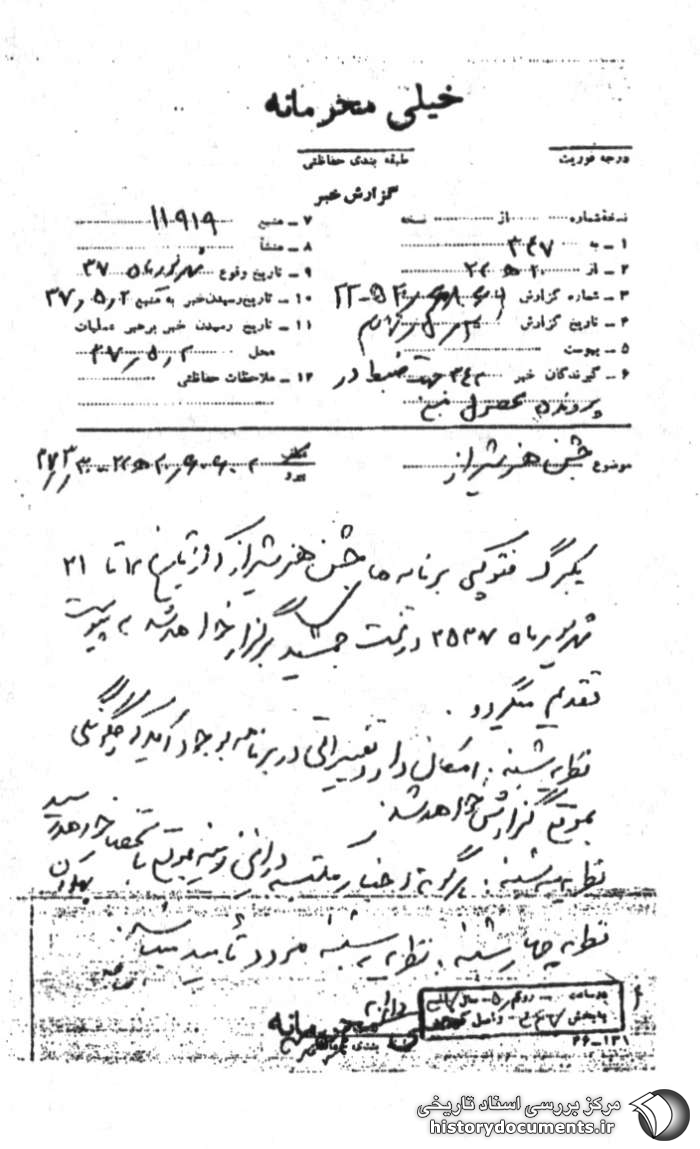 خیلی محرمانه
درجه فوریت
طبقه بندی حفاظتی
گزارش خبر
نسخه شماره از نسخه
۱ ـ به ۳۴۷
۲ ـ از ۲۰ ه ۲۲
۳ ـ شماره گزارش
۴ ـ تاریخ گزارش
۵ ـ پیوست
۶ ـ گیرندگان خبر ۳۴۲ جهت ضبط در
پرونده محصول منبع
۷ ـ منبع ۱۱۹۱۹
۸ ـ منشأ
۹ ـ تاریخ وقوع شهریورماه ۳۷
۱۰ ـ تاریخ رسیدن خبر به منبع ۲ر۵ر۳۷
۱۱ ـ تاریخ رسیدن خبر برهبر عملیات
محل ۲ر۵ر۳۷
۱۲ ـ ملاحظات حفاظتی
موضوع جشن هنر شیراز
یکبرگ فتوکپی برنامه های جشن هنر شیراز که از تاریخ ۱۲ تا ۲۱
شهریورماه ۲۵۳۷ در تخت جمشید برگزار خواهد شد به پیوست
تقدیم میگردد.
نظریه شنبه: امکان دارد تغییراتی در برنامه بوجود آید که چگونگی
بموقع گزارش خواهد شد.
نظریه سه شنبه: هرگونه اخبار مکتسبه در این زمینه بموقع باستحضار خواهد رسید
نظریه چهارشنبه. نظریه سه شنبه مورد تأیید میباشد.
خیلی محرمانه
۲۶-۱۳۱
مرکز بررسی اسناد تاریخی
historydocuments.ir